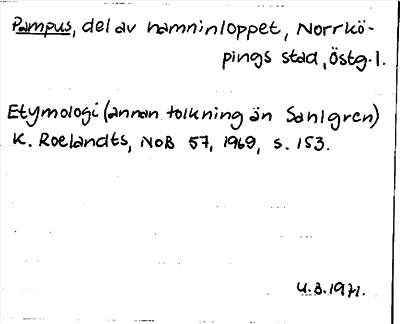 Pampus, del av hamninloppet, Norrkö-
pings stad, Östg. l.
Etymologi (annan tolkning än Sahlgren)
K. Roelandts, NoB 57, 1969, s. 153.
U.B. 1971.